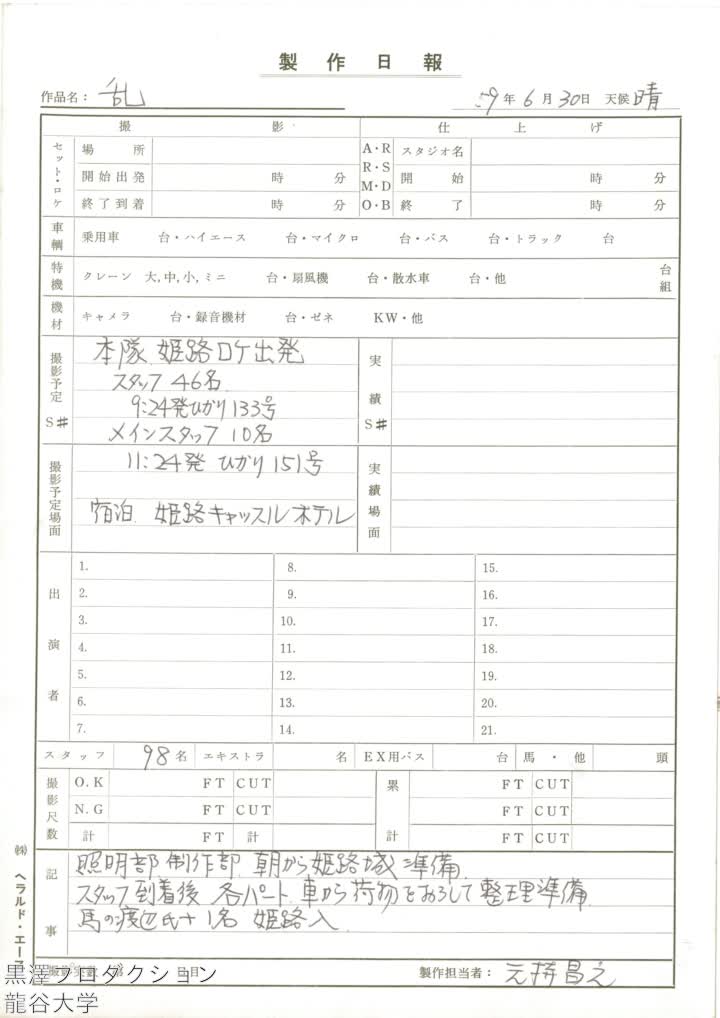 製作日報
作品名： 乱 59年6月30日 天候 晴
撮影 仕上げ
セット・ロケ 場所 A・R R・S M・D O・B スタジオ名
開始出発 時 分 開始 時 分
終了到着 時 分 終了 時 分
車輌 乗用車 台・ハイエース 台・マイクロ 台・バス 台・トラック 台
特機 クレーン 大,中,小,ミニ 台・扇風機 台・散水車 台・他 台組
機材 キャメラ 台・録音機材 台・ゼネ KW・他
撮影予定 S# 本隊 姫路ロケ出発 実績 S#
スタッフ 46名
9:24発ひかり133号
メインスタッフ 10名
撮影予定場面 11:24発 ひかり151号 実績場面
宿泊 姫路キャッスルホテル
出演者
1. 8. 15.
2. 9. 16.
3. 10. 17.
4. 11. 18.
5. 12. 19.
6. 13. 20.
7. 14. 21.
スタッフ 98名 エキストラ 名 EX用バス 台 馬・他 頭
撮影尺数 O.K FT CUT 累計 FT CUT
N.G FT CUT FT CUT
計 FT 計 FT CUT
記事 照明部 制作部 朝から姫路城準備
スタッフ到着後 各パート 車から荷物をおろして整理準備
馬の渡辺氏+1名 姫路入
撮影実数 日目 製作担当者：
㈱ ヘラルド・エース
黒澤プロダクション
龍谷大学